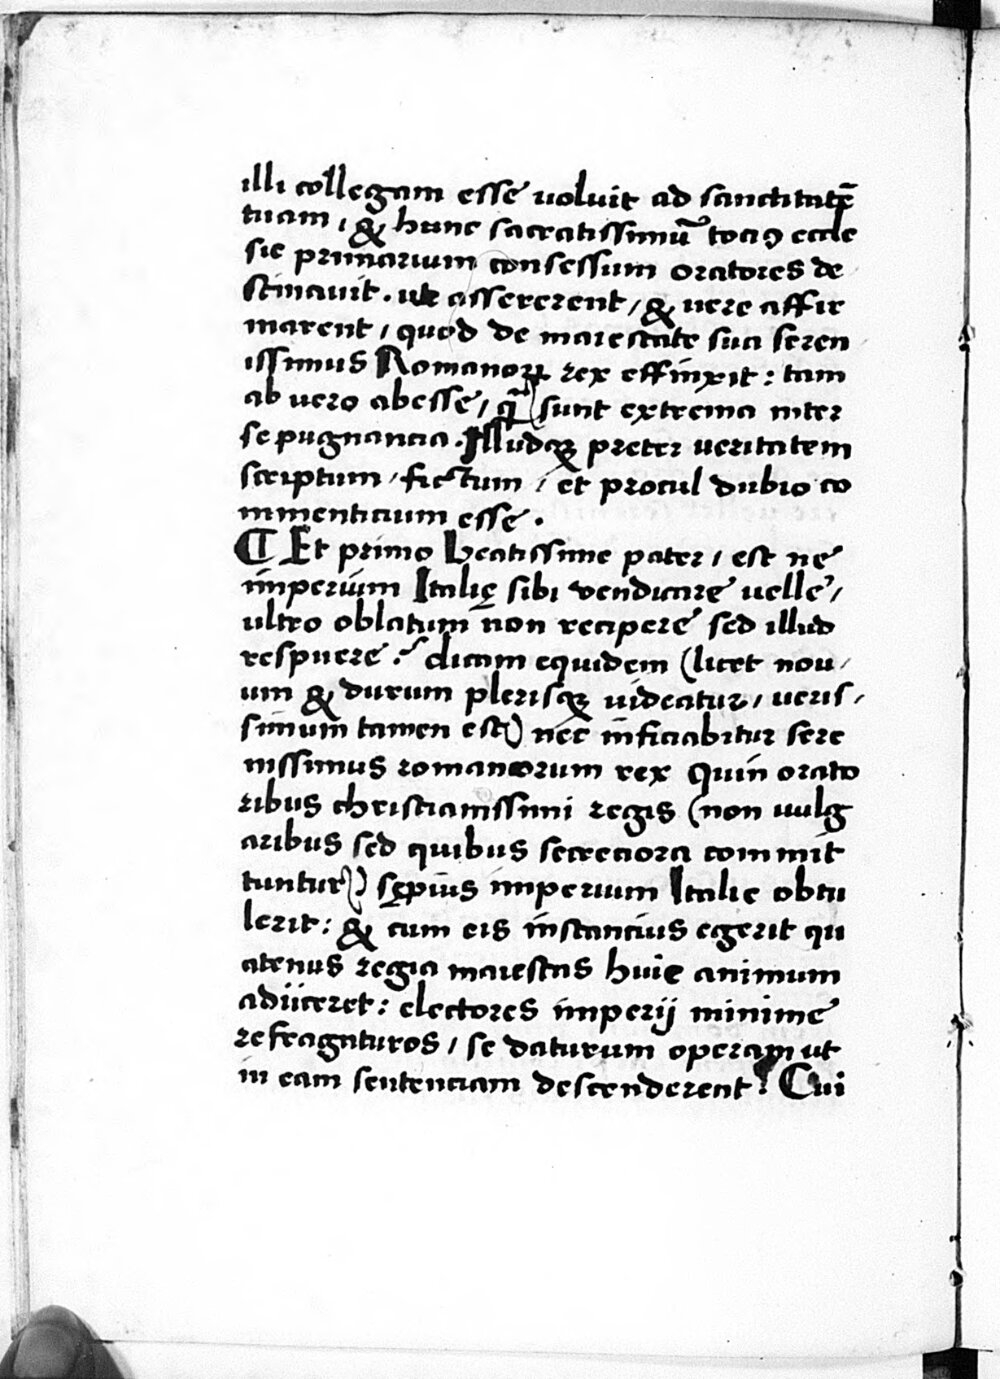 illi collegam esse uoluit ad sanctitatē
tuam, & hunc sacratissimū totiꝰ eccle
sie primarium consessum oratores de
stinauit. ut assererent, & uere affir
marent, quod de maiestate sua seren
issimus Romanoꝝ rex effinxit: tam
ab uero abesse, qᷓ sunt extrema inter
se pugnancia. Illudqꝫ preter ueritatem
scriptum, fictum, et procul dubio co
mmenticium esse.
¶ Et primo beatissime pater, est ne
imperium Italię sibi vendicare uelle,
ultro oblatum non recipere sed illud
respuere? dicam equidem (licet nou,
um & durum plerisqꝫ uideatur, ueris,
simum tamen est) nec inficiabitur sere
nissimus romanorum rex quin orato
ribus christianissimi regis (non uulg
aribus sed quibus secreciora commit
tuntur) sępius imperium Italie obtu
lerit: & cum eis instancius egerit qu
atenus regia maiestas huic animum
adiiceret: electores imperij minime
refragaturos, se daturum operam ut
in eam sentenciam descenderent. Cui